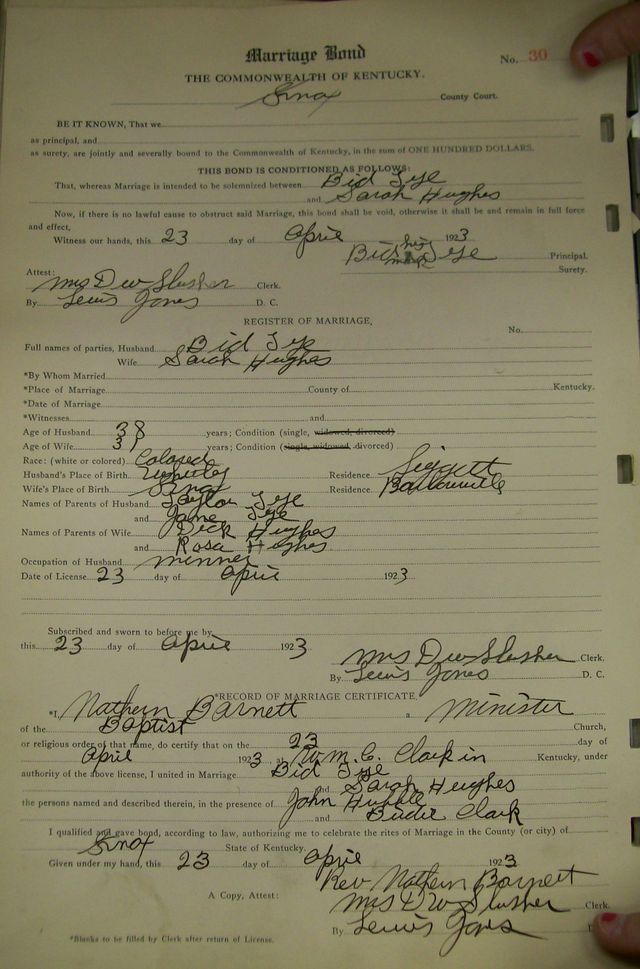 Marriage Bond
No. 30
THE COMMONWEALTH OF KENTUCKY.
Knox County Court.
BE IT KNOWN, That we
as principal, and
as surety, are jointly and severally bound to the Commonwealth of Kentucky, in the sum of ONE HUNDRED DOLLARS.
THIS BOND IS CONDITIONED AS FOLLOWS:
That, whereas Marriage is intended to be solemnized between Bid Tye
and Sarah Hughes
Now, if there is no lawful cause to obstruct said Marriage, this bond shall be void, otherwise it shall be and remain in full force
and effect,
Witness our hands, this 23 day of April 1923
Bid his mark Tye Principal.
Surety.
Attest:
Mrs D W Slusher Clerk.
By Lewis Jones D. C.
REGISTER OF MARRIAGE,
No.
Full names of parties, Husband Bid Tye
Wife Sarah Hughes
*By Whom Married
*Place of Marriage County of Kentucky.
*Date of Marriage
*Witnesses and
Age of Husband 38 years; Condition (single, widowed, divorced)
Age of Wife 37 years; Condition (single, widowed, divorced)
Race: (white or colored) Colored
Husband's Place of Birth Whitley Residence Liggett
Wife's Place of Birth Knox Residence Barbourville
Names of Parents of Husband Taylor Tye
and Jane Tye
Names of Parents of Wife Dick Hughes
and Rosa Hughes
Occupation of Husband minner
Date of License 23 day of April 1923
Subscribed and sworn to before me by
this 23 day of April 1923
Mrs D W Slusher Clerk.
By Lewis Jones D. C.
*RECORD OF MARRIAGE CERTIFICATE.
*I, Nathern Barnett a minister
of the Baptist Church,
or religious order of that name, do certify that on the 23 day of
April 1923 at Wm. C. Clark in Kentucky, under
authority of the above license, I united in Marriage Bid Tye
and Sarah Hughes
the persons named and described therein, in the presence of John Hubble
and Budie Clark
I qualified and gave bond, according to law, authorizing me to celebrate the rites of Marriage in the County (or city) of
Knox State of Kentucky.
Given under my hand, this 23 day of April 1923
Rev Nathern Barnett
A Copy, Attest: Mrs D W Slusher Clerk.
By Lewis Jones
*Blanks to be filled by Clerk after return of License.